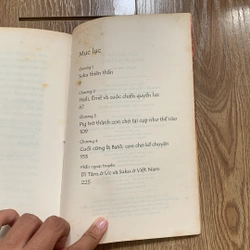 Mục lục
Chương 1
Suka thiên thần
Chương 2
và cuộc chiến quyền lực
67
Chương 3
trở thành con chó tại cụp như thế nào
109
Chương 4
Cuối cùng là con chó kể chuyện
155
Phần ngoại truyện
Dì Tám ở Úc và Suku ở Việt Nam
225